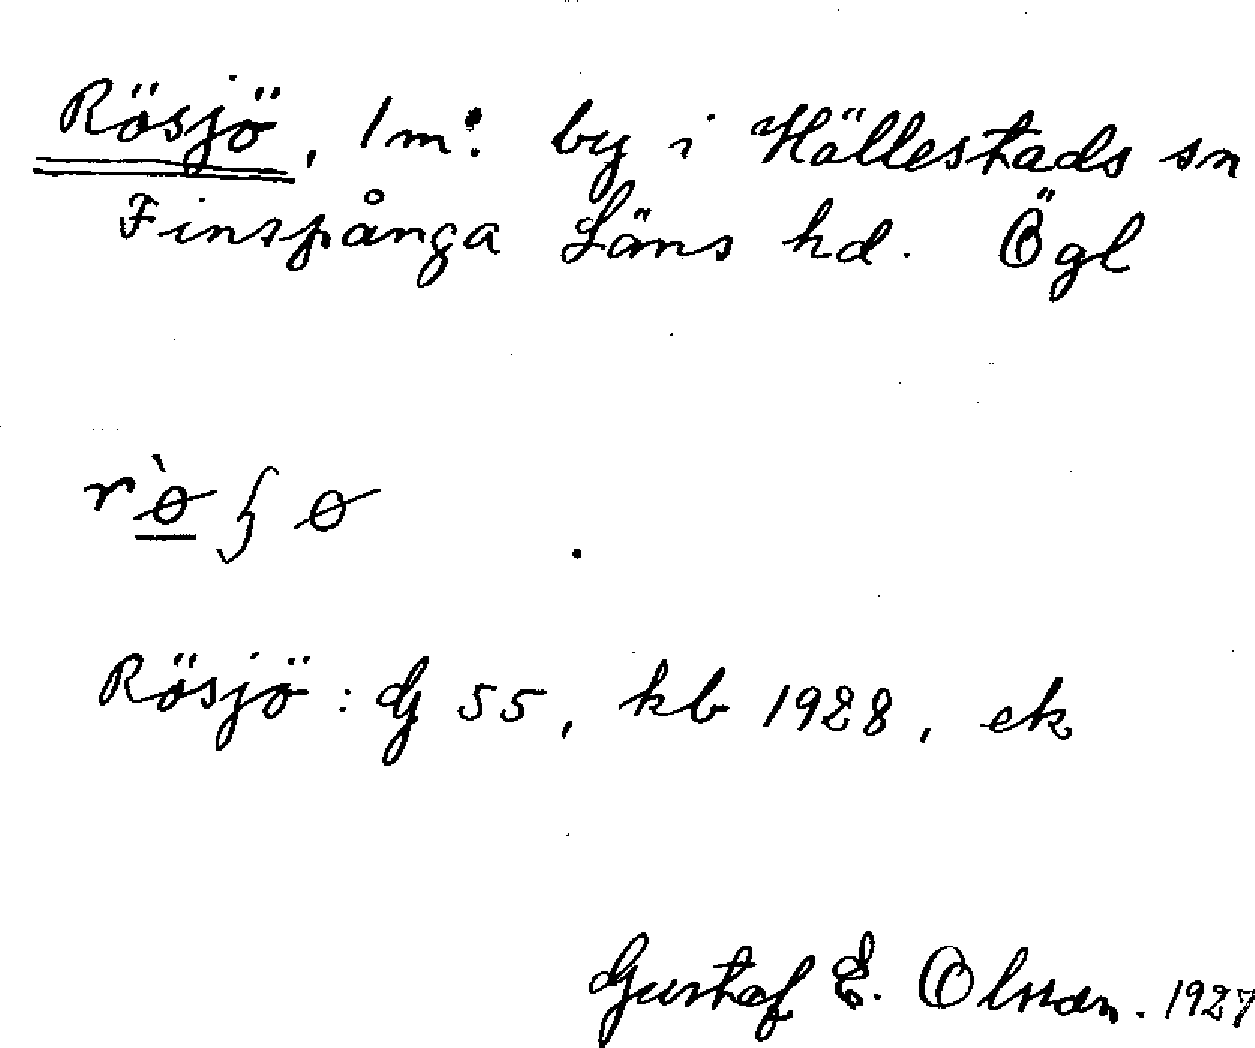 Rösjö, 1 m: by i Hällestads sn
Finspånga Läns hd. Ögl
Rösjö : G 55, kb 1928, ek
Gustaf E. Olsson. 1927